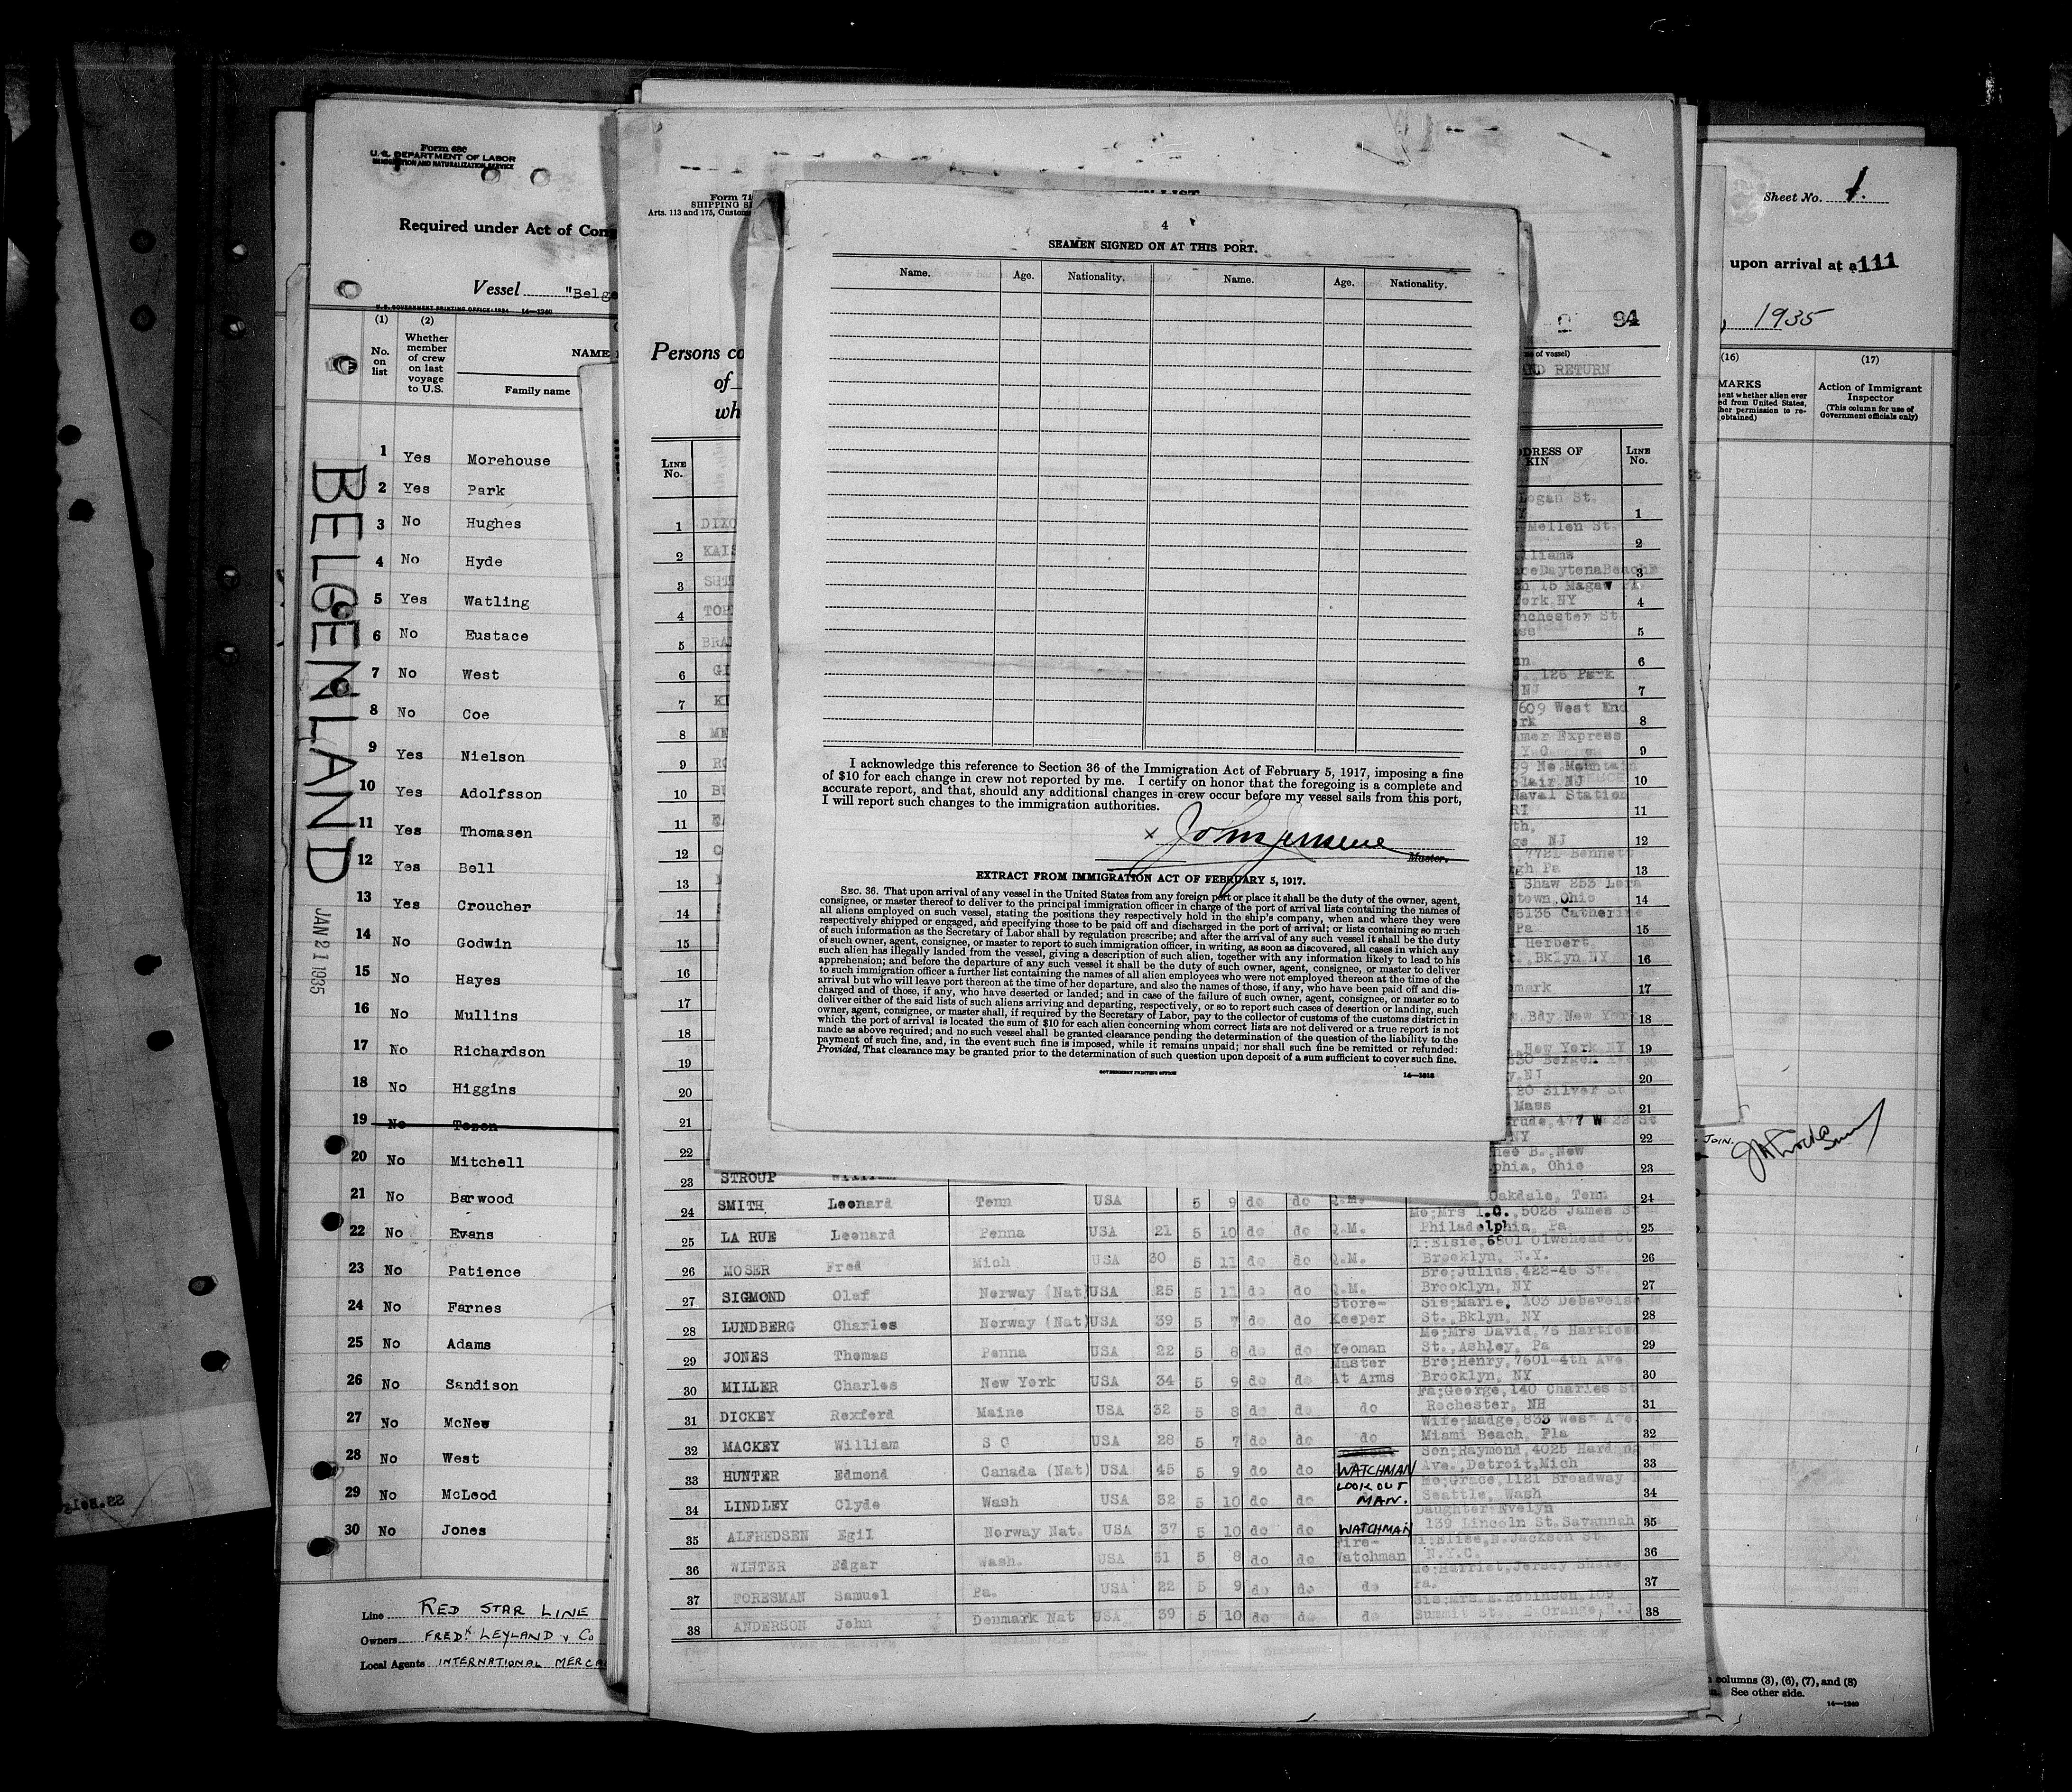 Form 680
U. S. DEPARTMENT OF LABOR
IMMIGRATION AND NATURALIZATION SERVICE
Required under Act of Con
Vessel "Belge
U. S. GOVERNMENT PRINTING OFFICE: 1934 14—1240
(1) (2)
No. on list
Whether member of crew on last voyage to U.S.
NAME
Family name
1 Yes Morehouse
2 Yes Park
3 No Hughes
4 No Hyde
5 Yes Watling
6 No Eustace
7 No West
8 No Coe
9 Yes Nielson
10 Yes Adolfsson
11 Yes Thomasen
12 Yes Bell
13 Yes Croucher
14 No Godwin
15 No Hayes
16 No Mullins
17 No Richardson
18 No Higgins
19 No Tozon
20 No Mitchell
21 No Barwood
22 No Evans
23 No Patience
24 No Farnes
25 No Adams
26 No Sandison
27 No McNew
28 No West
29 No McLeod
30 No Jones
BELGENLAND
JAN 21 1935
Line RED STAR LINE
Owners FREDK LEYLAND & Co
Local Agents INTERNATIONAL MERCA
Form 71
SHIPPING S
Arts. 113 and 175, Custom
Persons co
of
wh
LINE No.
1 DIXO
2 KAIS
3
4
5 BRA
6 GI
7 KI
8
9
10
11
12
13
14
15
16
17
18
19
20
21
22
4
SEAMEN SIGNED ON AT THIS PORT.
Name. Age. Nationality. Name. Age. Nationality.
I acknowledge this reference to Section 36 of the Immigration Act of February 5, 1917, imposing a fine
of $10 for each change in crew not reported by me. I certify on honor that the foregoing is a complete and
accurate report, and that, should any additional changes in crew occur before my vessel sails from this port,
I will report such changes to the immigration authorities.
x John Jensen
Master.
EXTRACT FROM IMMIGRATION ACT OF FEBRUARY 5, 1917.
SEC. 36. That upon arrival of any vessel in the United States from any foreign port or place it shall be the duty of the owner, agent,
consignee, or master thereof to deliver to the principal immigration officer in charge of the port of arrival lists containing the names of
all aliens employed on such vessel, stating the positions they respectively hold in the ship's company, when and where they were
respectively shipped or engaged, and specifying those to be paid off and discharged in the port of arrival; or lists containing so much
of such information as the Secretary of Labor shall by regulation prescribe; and after the arrival of any such vessel it shall be the duty
of such owner, agent, consignee, or master to report to such immigration officer, in writing, as soon as discovered, all cases in which any
such alien has illegally landed from the vessel, giving a description of such alien, together with any information likely to lead to his
apprehension; and before the departure of any such vessel it shall be the duty of such owner, agent, consignee, or master to deliver
to such immigration officer a further list containing the names of all alien employees who were not employed thereon at the time of the
arrival but who will leave port thereon at the time of her departure, and also the names of those, if any, who have been paid off and dis-
charged and of those, if any, who have deserted or landed; and in case of the failure of such owner, agent, consignee, or master so to
deliver either of the said lists of such aliens arriving and departing, respectively, or so to report such cases of desertion or landing, such
owner, agent, consignee, or master shall, if required by the Secretary of Labor, pay to the collector of customs of the customs district in
which the port of arrival is located the sum of $10 for each alien concerning whom correct lists are not delivered or a true report is not
made as above required; and no such vessel shall be granted clearance pending the determination of the question of the liability to the
payment of such fine, and, in the event such fine is imposed, while it remains unpaid; nor shall such fine be remitted or refunded:
Provided, That clearance may be granted prior to the determination of such question upon deposit of a sum sufficient to cover such fine.
GOVERNMENT PRINTING OFFICE 14—1313
94
of vessel)
AND RETURN
DDRESS OF KIN
LINE No.
Logan St.
1
Mellen St.
2
illiams
ceDaytonaBeach
3
15 Magaw Pl
York NY
4
nchester St.
5
6
125 Park
NJ
7
609 West End
8
Amer Express
9
99 No Mountain
clair NJ
10
Naval Station
RI
11
NJ
12
7721 Bennett
gh Pa
13
Shaw 253 Lora
stown Ohio
14
5135 Catherine
Pa
15
Herbert,
Bklyn NY
16
mark
17
Bdy New York
18
New York NY
19
NJ
20
20 Silver St
Mass
21
rude, 477 W 22 St
NY
22
B., New
phia, Ohio
23
23 STROUP William
24 SMITH Leonard Tenn USA 5 9 do do Q.M. Oakdale, Tenn 24
25 LA RUE Leonard Penna USA 21 5 10 do do Q.M. Mo;Mrs I.C.,5028 James St Philadelphia, Pa 25
26 MOSER Fred Mich USA 30 5 11 do do Q.M. Brooklyn, N.Y. 26
27 SIGMOND Olaf Norway (Nat) USA 25 5 11 do do Q.M. Bro;Julius,422-46 St. Brooklyn, NY 27
28 LUNDBERG Charles Norway (Nat) USA 39 5 7 do do Store-Keeper Sis;Marie, 103 Debevoise St. Bklyn, NY 28
29 JONES Thomas Penna USA 22 5 8 do do Yeoman Mo;Mrs David,75 Hartford St., Ashley, Pa 29
30 MILLER Charles New York USA 34 5 9 do do Master At Arms Bro;Henry,7601-4th Ave. Brooklyn, NY 30
31 DICKEY Rexford Maine USA 32 5 8 do do do Fa;George,140 Charles St Rochester, NH 31
32 MACKEY William S C USA 28 5 7 do do do Wife;Madge,833 West Ave. Miami Beach, Fla 32
33 HUNTER Edmond Canada (Nat) USA 45 5 9 do do WATCHMAN Son;Raymond,4025 Harding Ave.,Detroit,Mich 33
34 LINDLEY Clyde Wash USA 32 5 10 do do LOOKOUT MAN. Mo;Grace,1121 Broadway Seattle, Wash 34
35 ALFREDSEN Egil Norway Nat. USA 37 5 10 do do WATCHMAN Daughter Evelyn 139 Lincoln St.Savannah 35
36 WINTER Edgar Wash. USA 51 5 8 do do Fire-Watchman Jackson St. N.Y.C. 36
37 FORESMAN Samuel Pa. USA 22 5 9 do do do Mo;Harriet,Jersey Shore, Pa. 37
38 ANDERSON John Denmark Nat USA 39 5 10 do do do Sis;Mrs.E.Robinson,109 Summit St. E.Orange,N.J. 38
Sheet No. 1.
upon arrival at a 111
, 1935
(16) (17)
MARKS
ent whether alien ever
ed from United States,
her permission to re-
obtained)
Action of Immigrant Inspector
(This column for use of Government officials only)
JOIN.
columns (3), (6), (7), and (8)
See other side.
14—1240